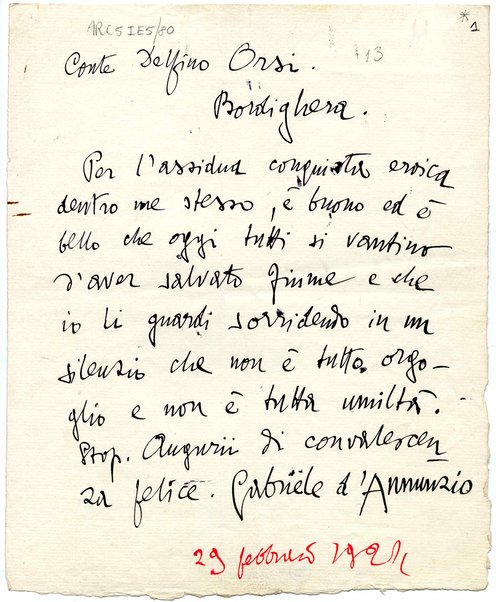 ARC5IE5/80
*1
13
Conte Delfino Orsi.
Bordighera.
Per l'assidua conquista eroica
dentro me stesso, è buono ed è
bello che oggi tutti si vantino
d'aver salvato Fiume e che
io li guardi sorridendo in un
silenzio che non è tutto orgo-
glio e non è tutta umiltà.
Stop. Augurii di convalescen
za felice. Gabriele d'Annunzio
29 febbraio 1924